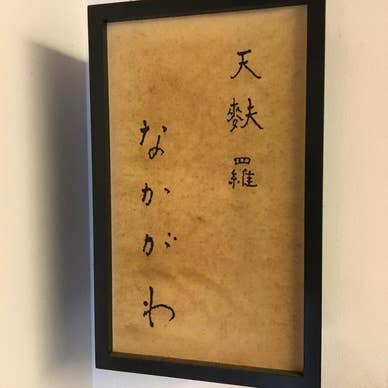 天麩羅
なかがわ